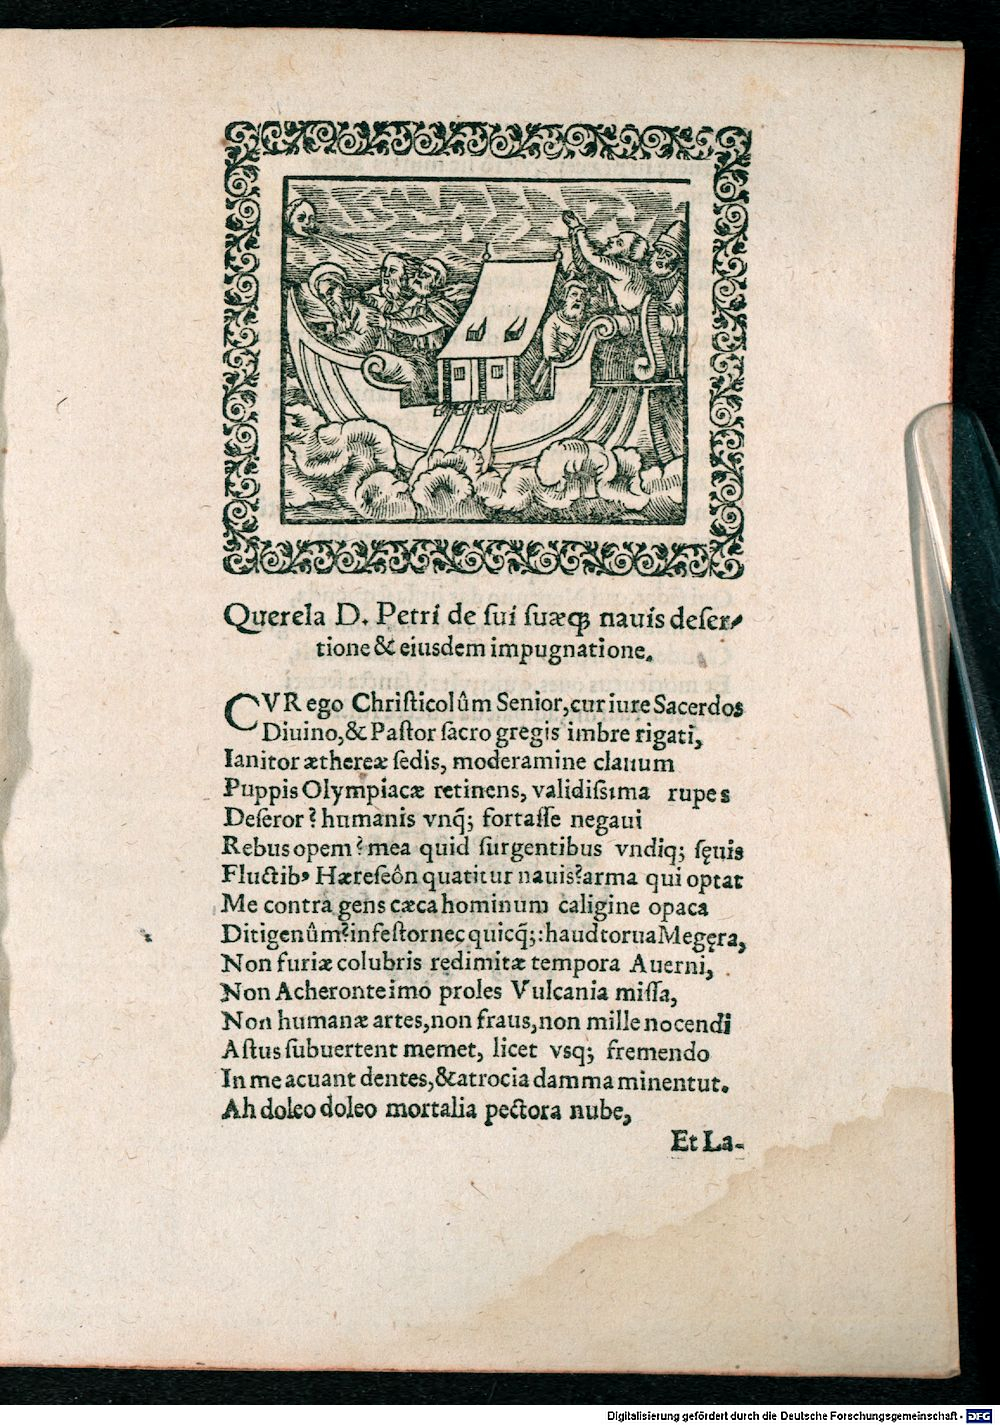 Querela D. Petri de ſui ſuæqꝫ nauis deſer-
tione & eiusdem impugnatione.
CVR ego Chriſticolûm Senior, cur iure Sacerdos
Diuino, & Paſtor ſacro gregis imbre rigati,
Ianitor æthereæ ſedis, moderamine clauum
Puppis Olympiacæ retinens, validiſsima rupes
Deſeror? humanis vnq̃; fortaſſe negaui
Rebus opem? mea quid ſurgentibus vndiq; ſęuis
Fluctibꝰ Hæreſeôn quatitur nauis? arma qui optat
Me contra gens cæca hominum caligine opaca
Ditigenûm? infeſtor nec quicq̃;: haud torua Megęra,
Non furiæ colubris redimitæ tempora Auerni,
Non Acheronte imo proles Vulcania miſſa,
Non humanæ artes, non fraus, non mille nocendi
Aſtus ſubuertent memet, licet vsq; fremendo
In me acuant dentes, & atrocia damma minentut.
Ah doleo doleo mortalia pectora nube,
Et La-
Digitalisierung gefördert durch die Deutsche Forschungsgemeinschaft - DFG